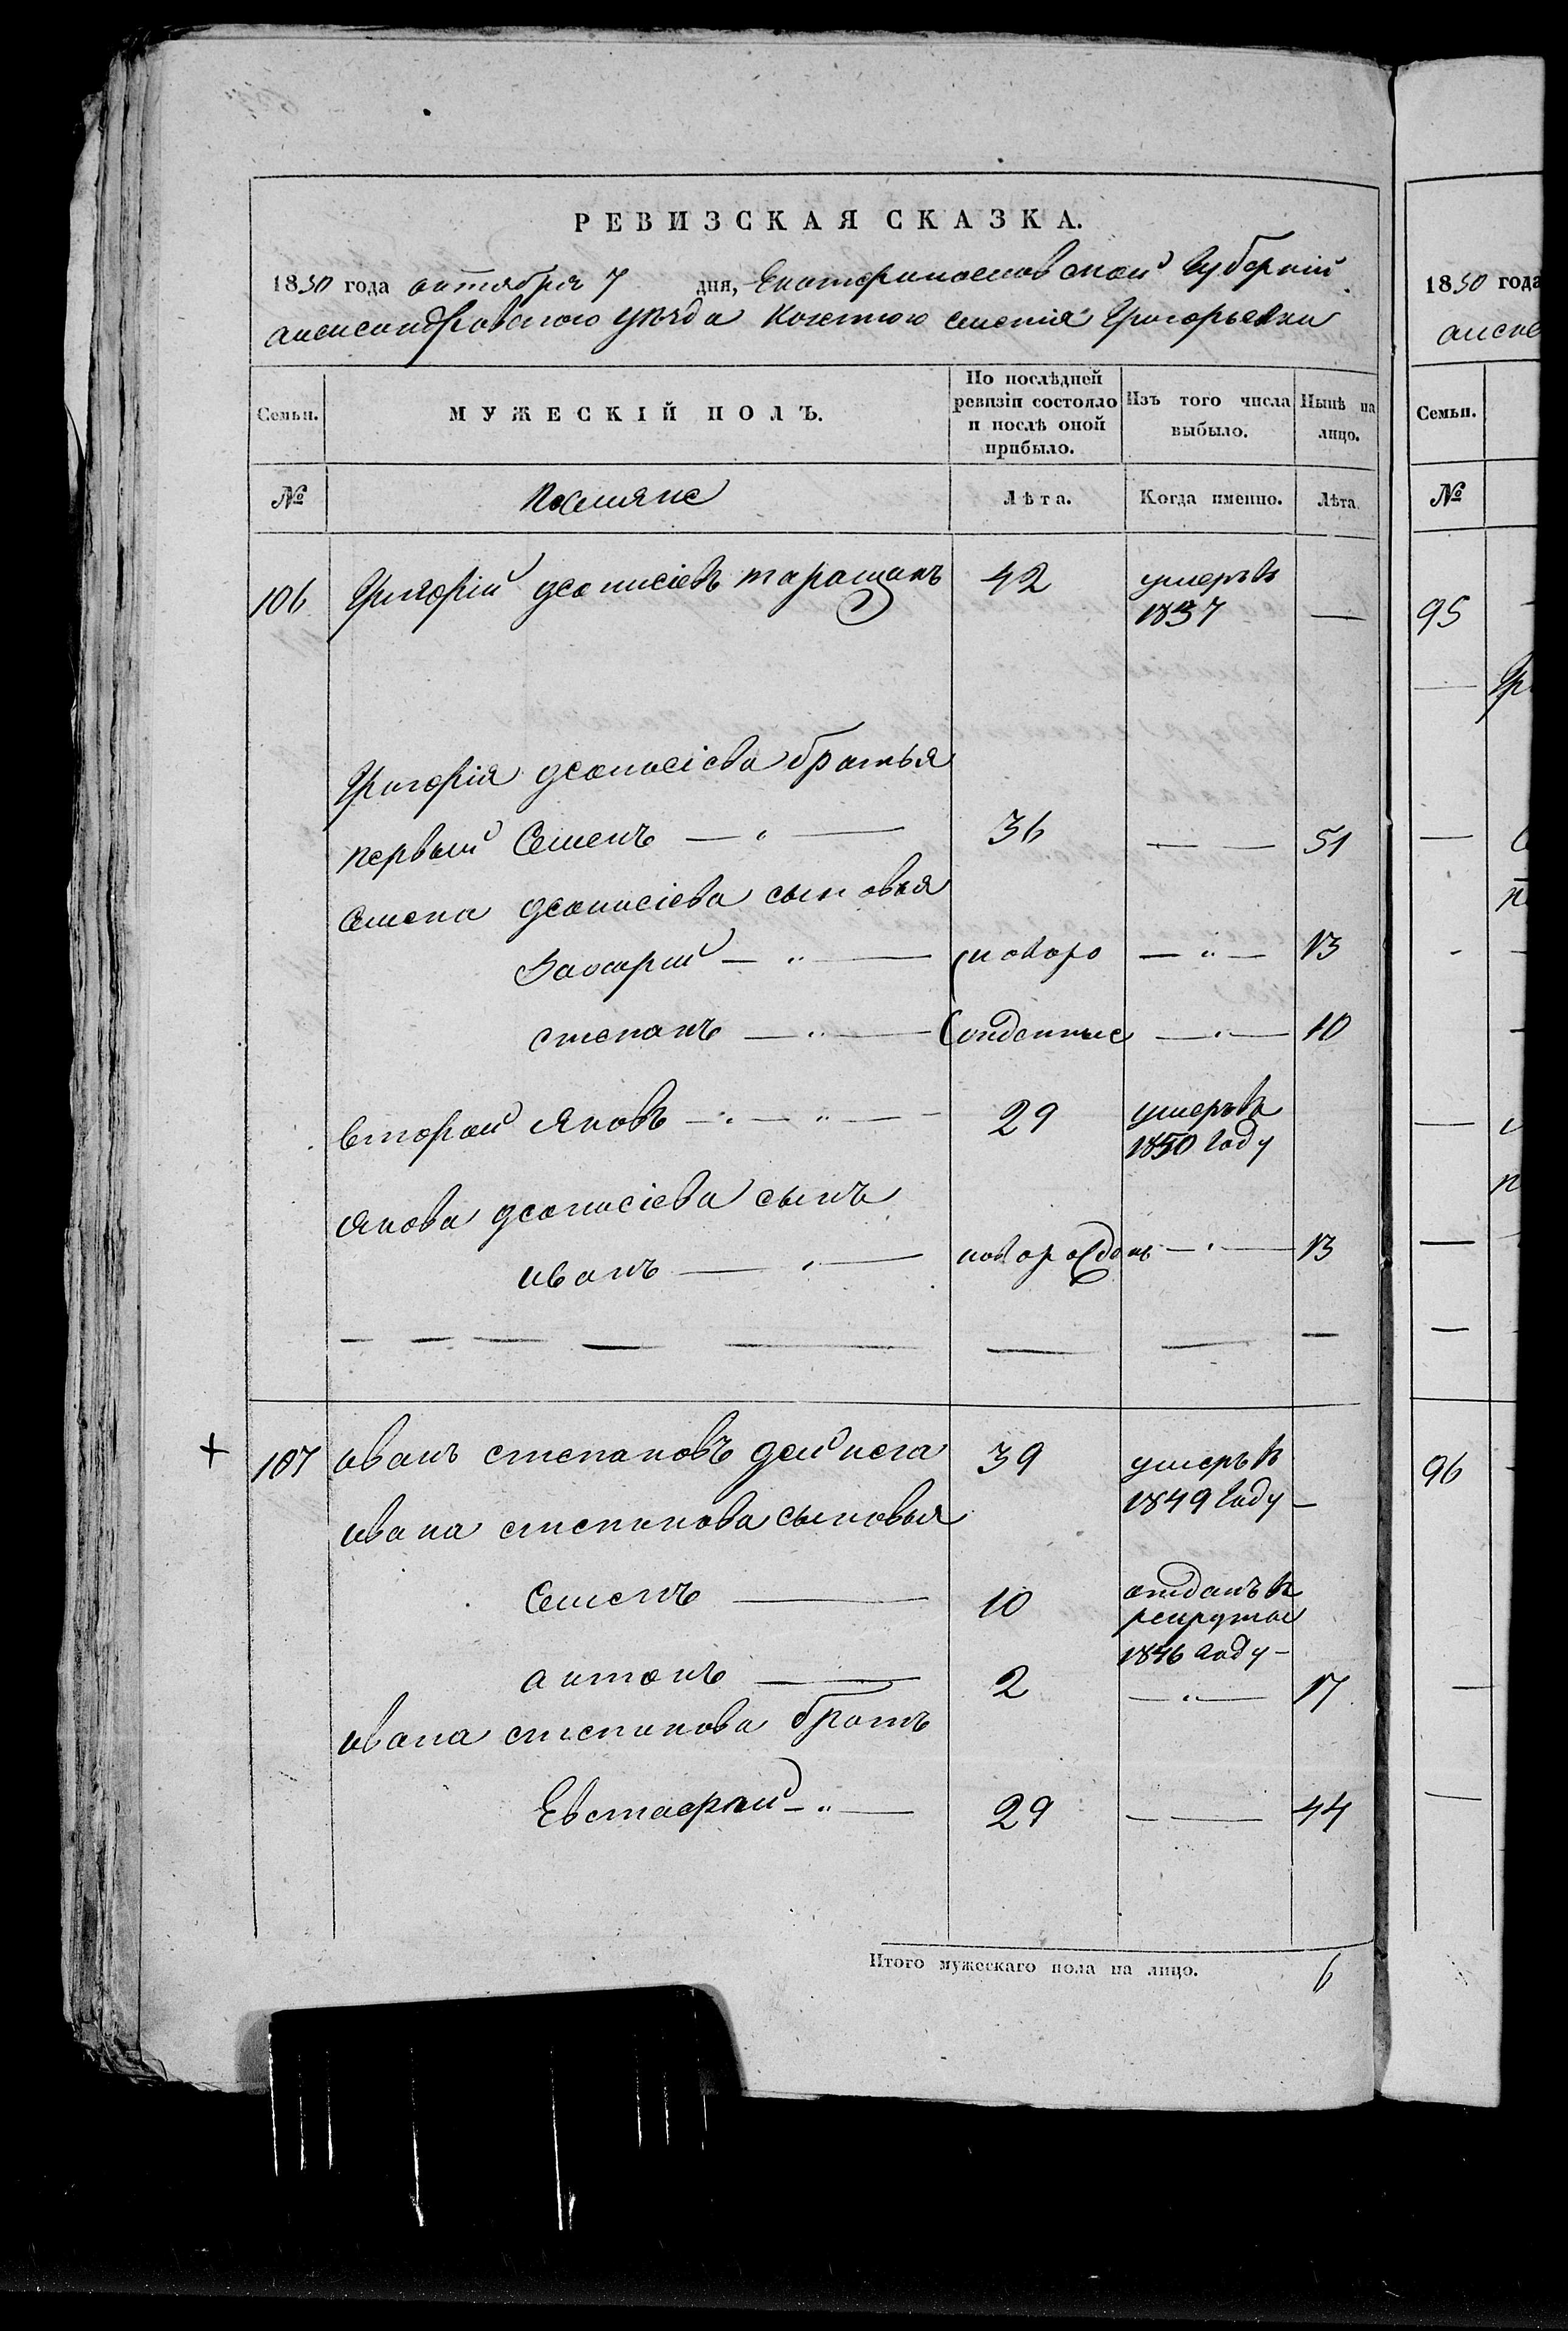 РЕВИЗСКАЯ СКАЗКА.
1850 года октября 7 дня, Екатеринославской Губерній
александровского уѣзда казенного селенія Григорьевки
Семьи. МУЖЕСКІЙ ПОЛЪ. По послѣдней ревизіи состояло и послѣ оной прибыло. Изъ того числа выбыло. Нынѣ на лицо.
№ Поселяне Лѣта. Когда именно. Лѣта.
106 Григорій деонисіевъ таращанъ 42 умеръ в
1837 —
Григорія деонисіева братья
первый Семенъ — " — 36 — — 51
Семена деонисіева сыновья
Захарий — " — (новоро — " — 13
степанъ — " — (жденные — " — 10
второй Яковъ — " — " — 29 умеръ в
1850 году
Якова деонисіева сынъ
иванъ — " — новорожденъ — " — 13
— — — — — — — —
+ 107 иванъ степановъ дейнега 39 умеръ в
1849 году —
ивана степанова сыновья
Семенъ — 10 отданъ в
рекруты
1846 году —
антонъ — 2 — " — 17
ивана степанова братъ
Евстафий — " — 29 — — 44
Итого мужескаго пола на лицо. 6
1850 года
Семьи.
№
95
96